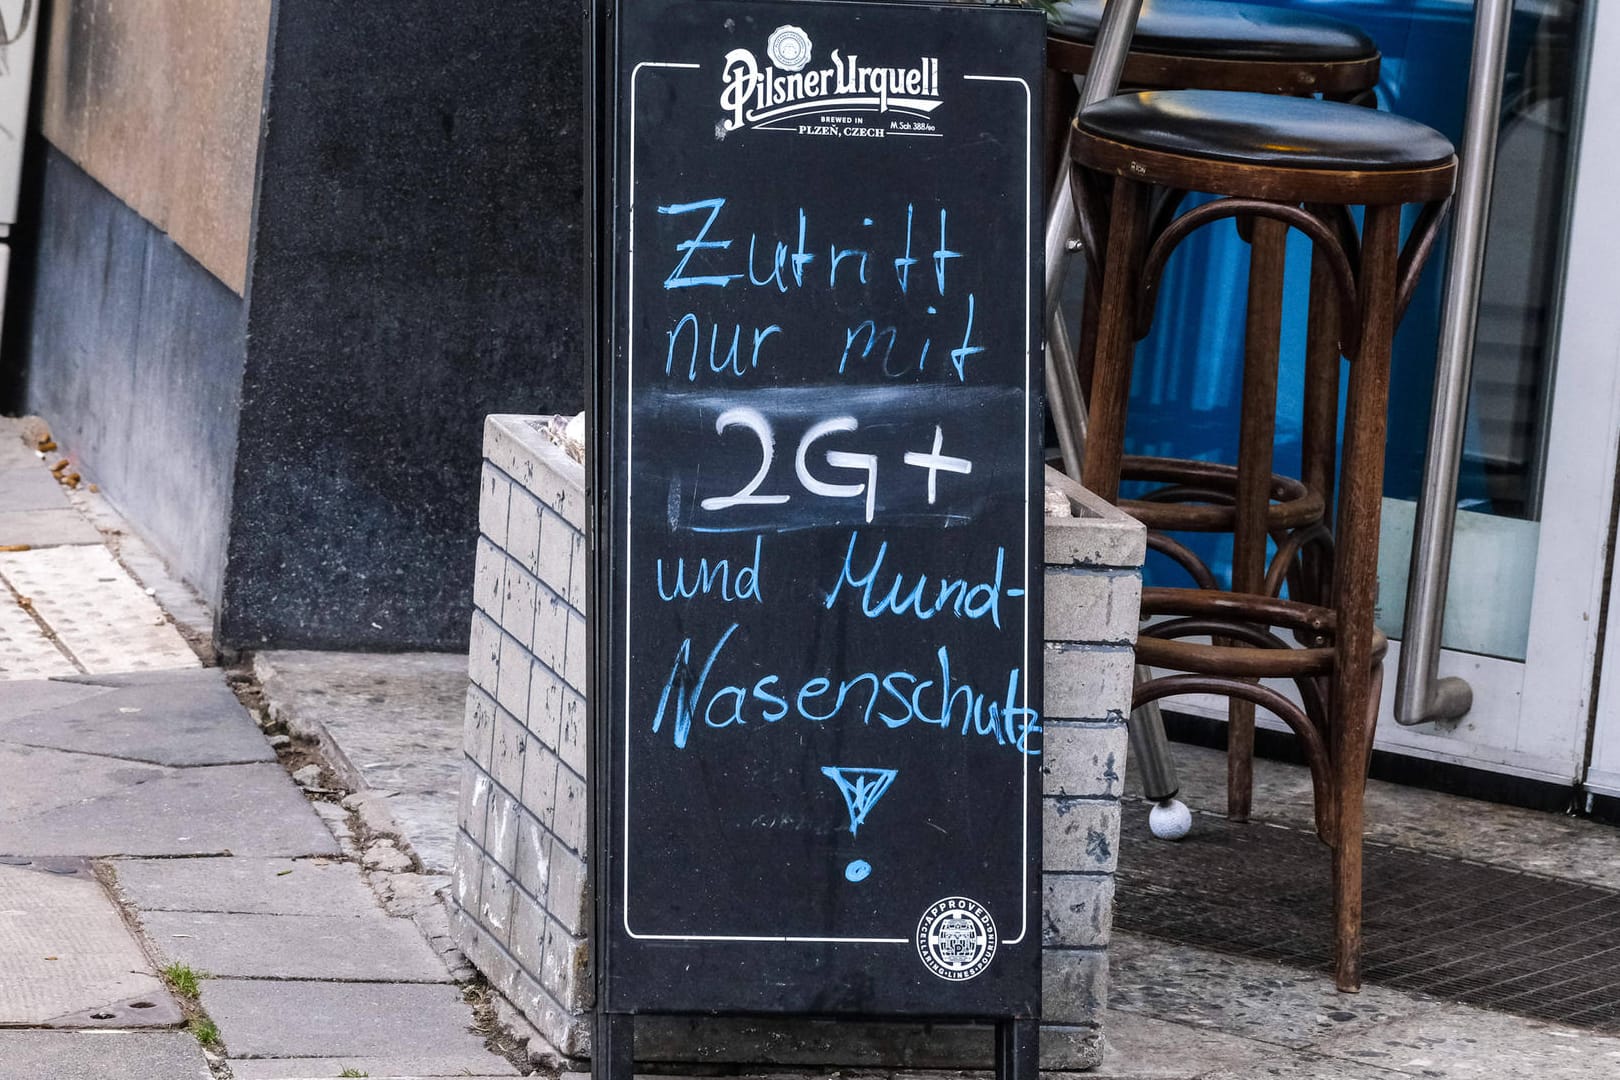 Pilsner Urquell
BREWED IN
PLZEŇ, CZECH
M.Sch 388/00
Zutritt
nur mit
2G+
und Mund-
Nasenschutz
!
APPROVED
CELLARING • LINES • POURING